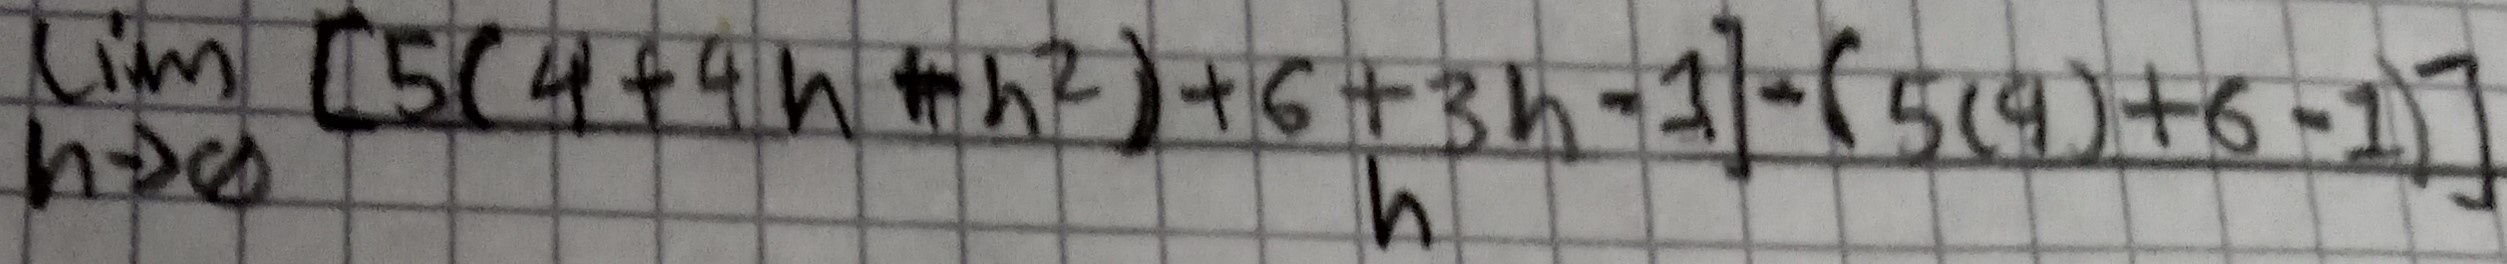 lim [5(4+4h+h²)+6+3h-1]-(5(4)+6-1)]
h→∞ h